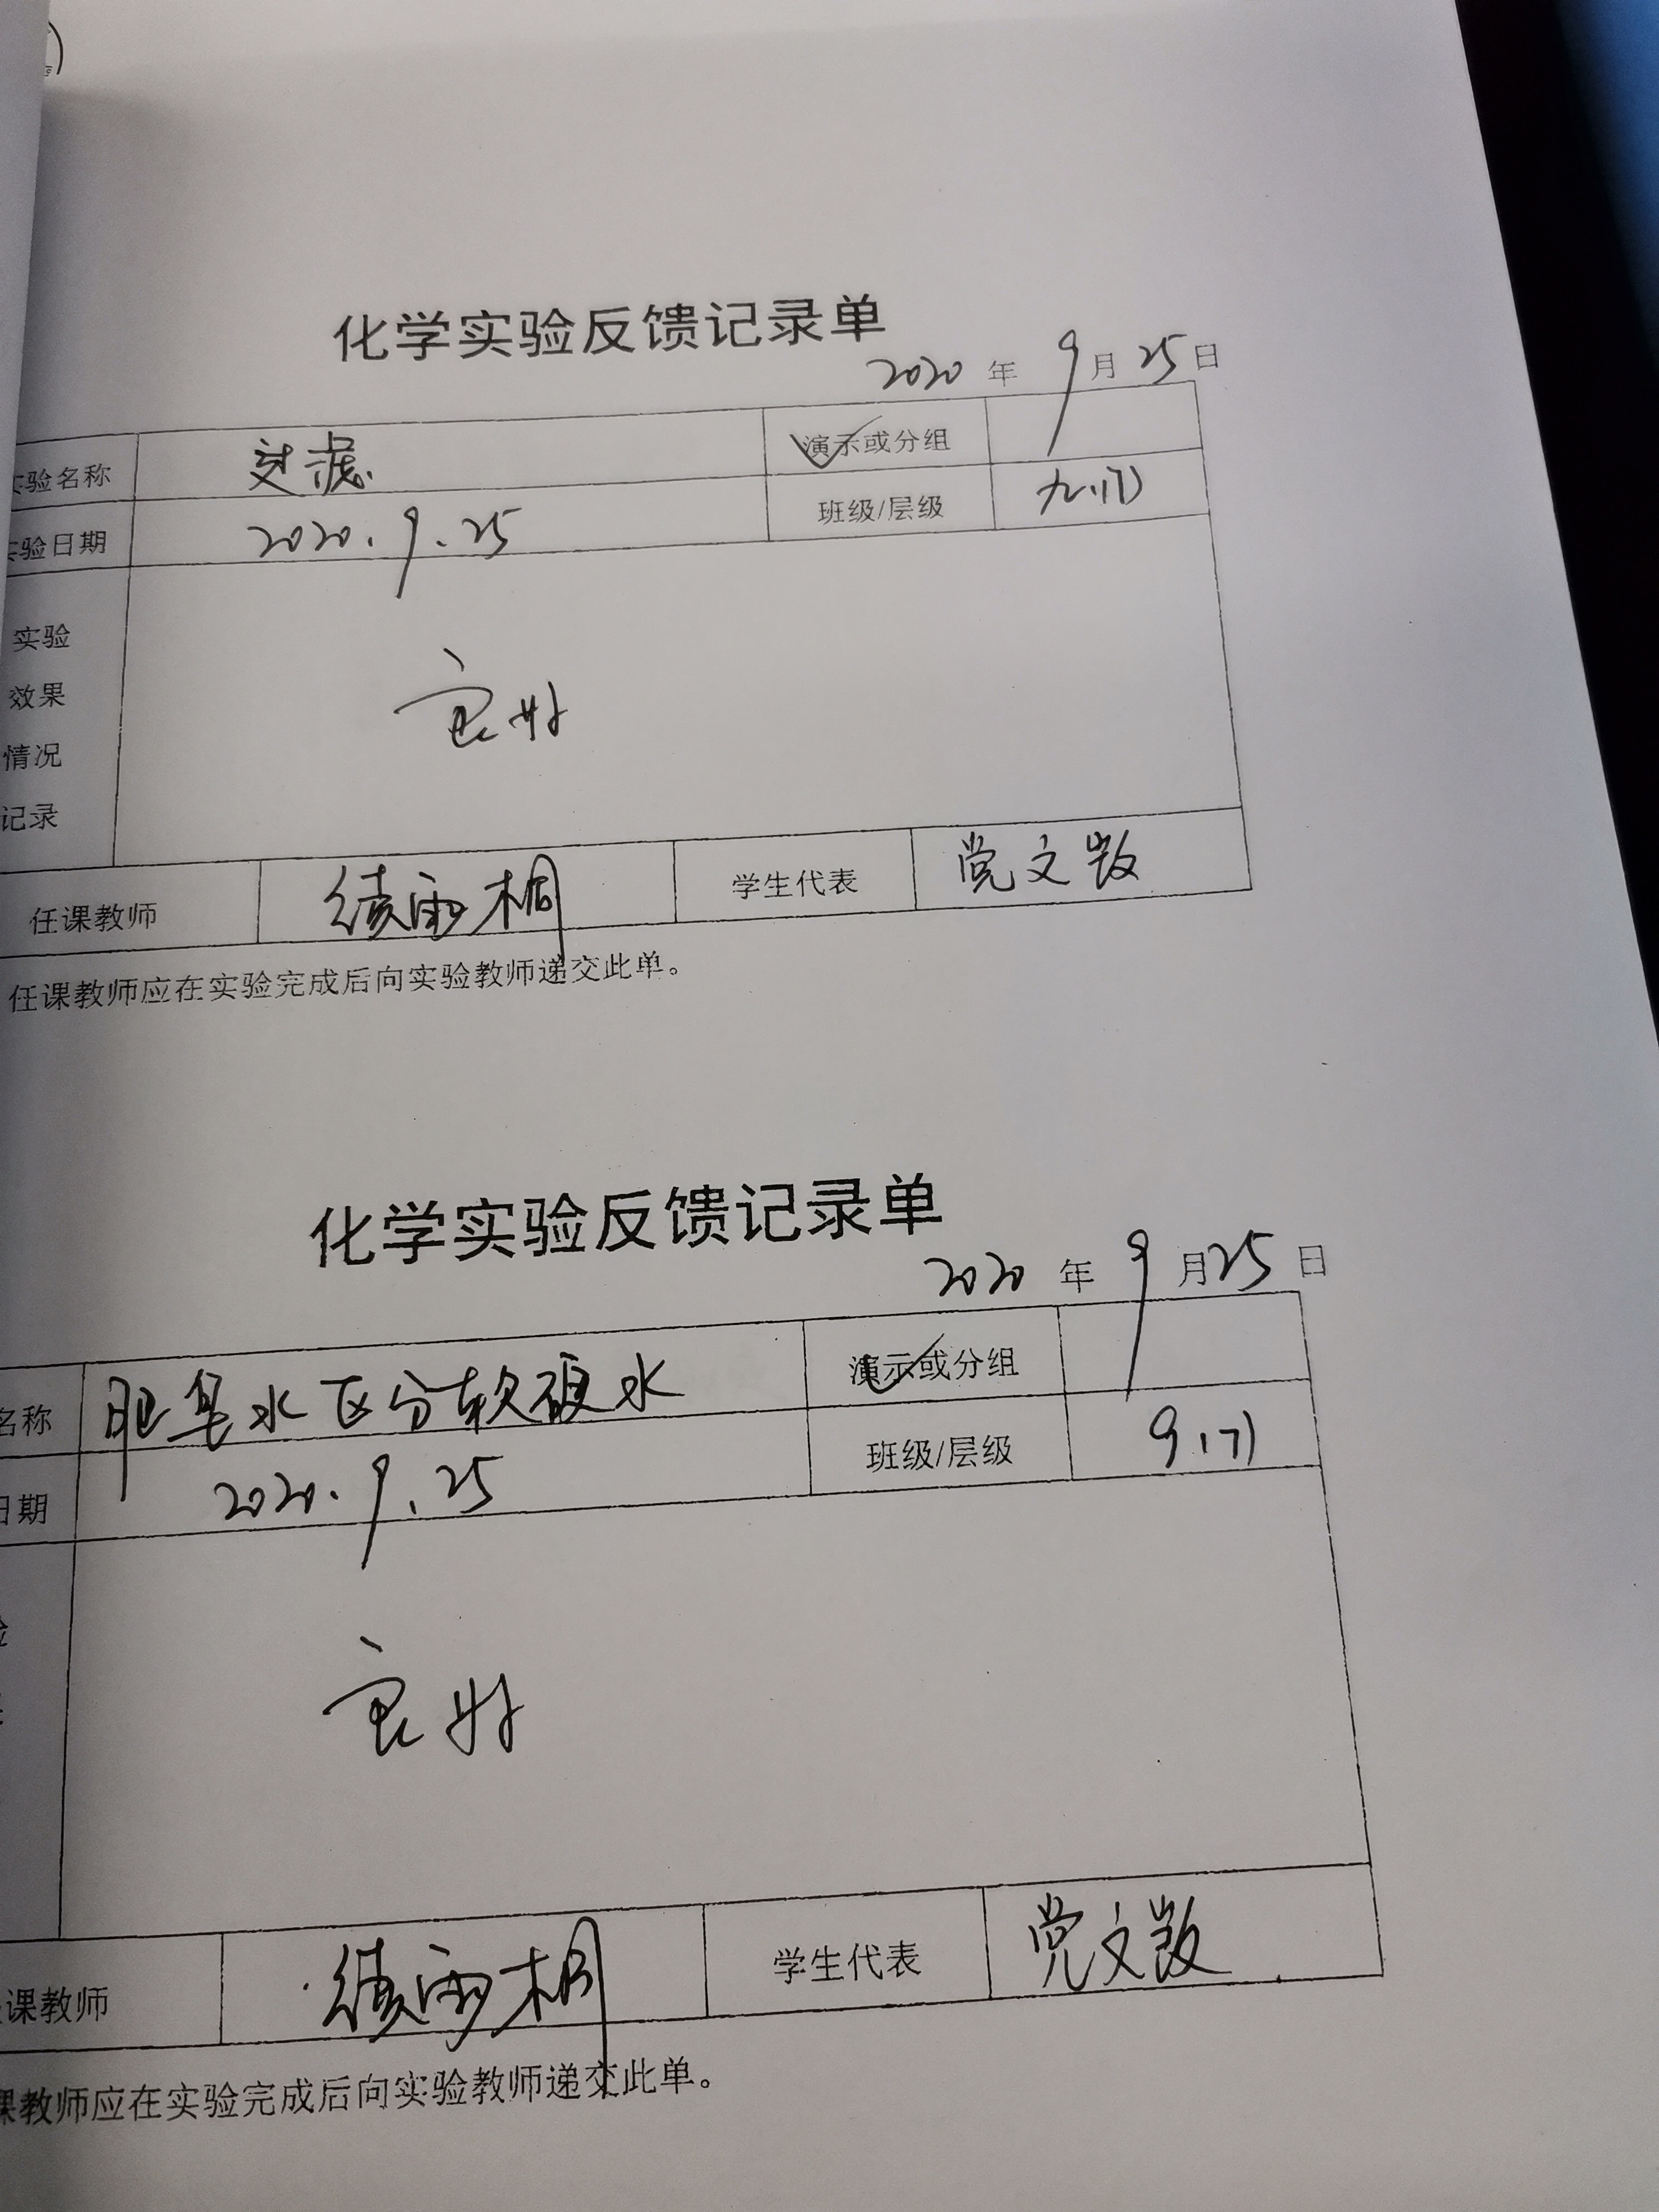 化学实验反馈记录单
2020 年 9 月 25 日
实验名称 过滤 演示或分组
实验日期 2020.9.25 班级/层级 九.(7)
实验
效果 良好
情况
记录
任课教师 续雨桐 学生代表 党文
任课教师应在实验完成后向实验教师递交此单。
化学实验反馈记录单
2020 年 9 月 25 日
名称 肥皂水区分软硬水 演示或分组
日期 2020.9.25 班级/层级 9.(7)
验
良好
课教师 续雨桐 学生代表 党文
课教师应在实验完成后向实验教师递交此单。